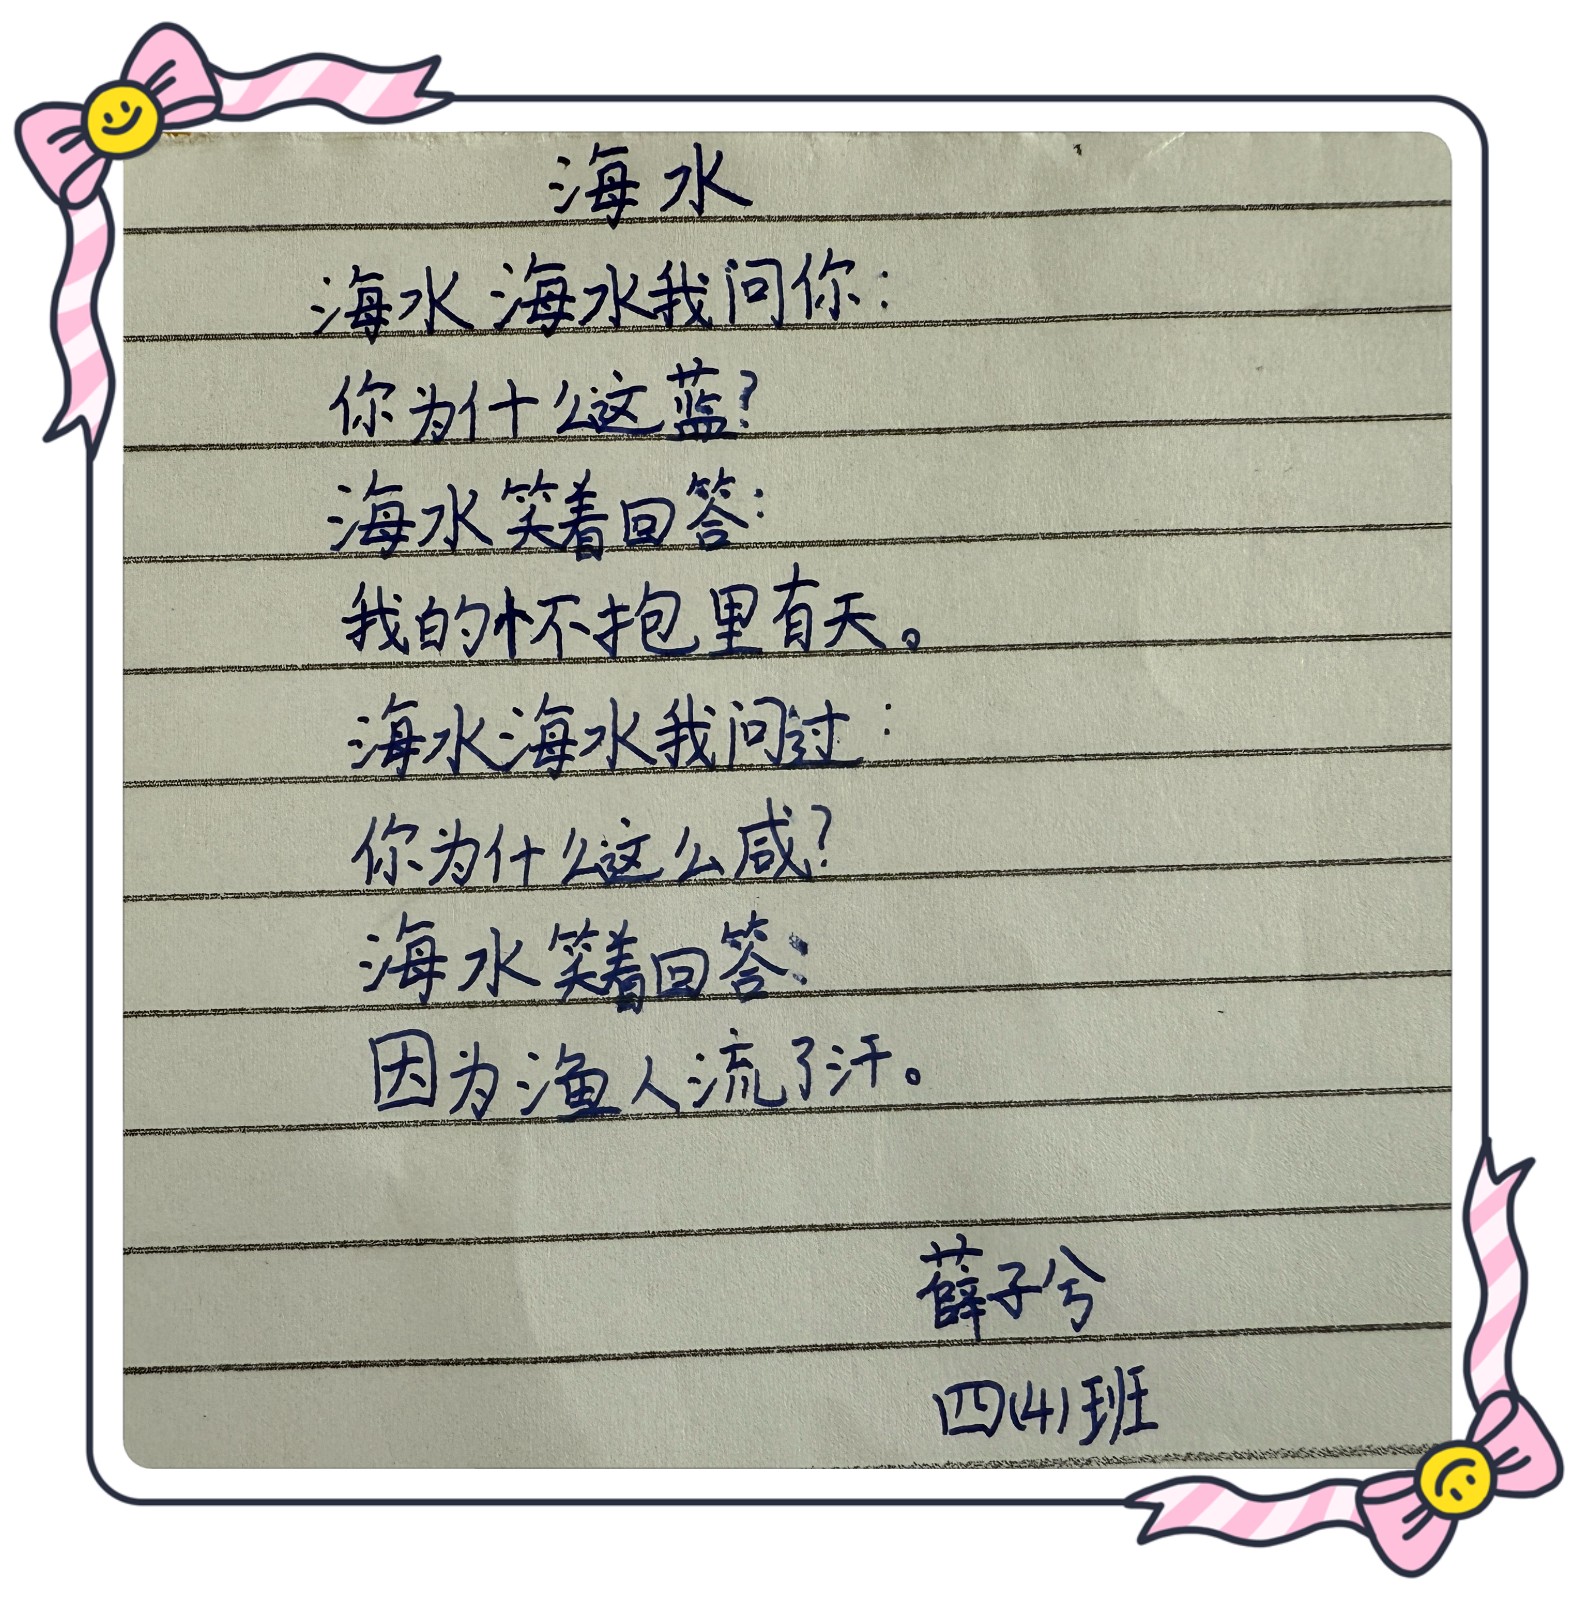 海水
海水海水我问你：
你为什么这蓝？
海水笑着回答：
我的怀抱里有天。
海水海水我问过：
你为什么这么咸？
海水笑着回答：
因为渔人流了汗。
薛子兮
四(4)班